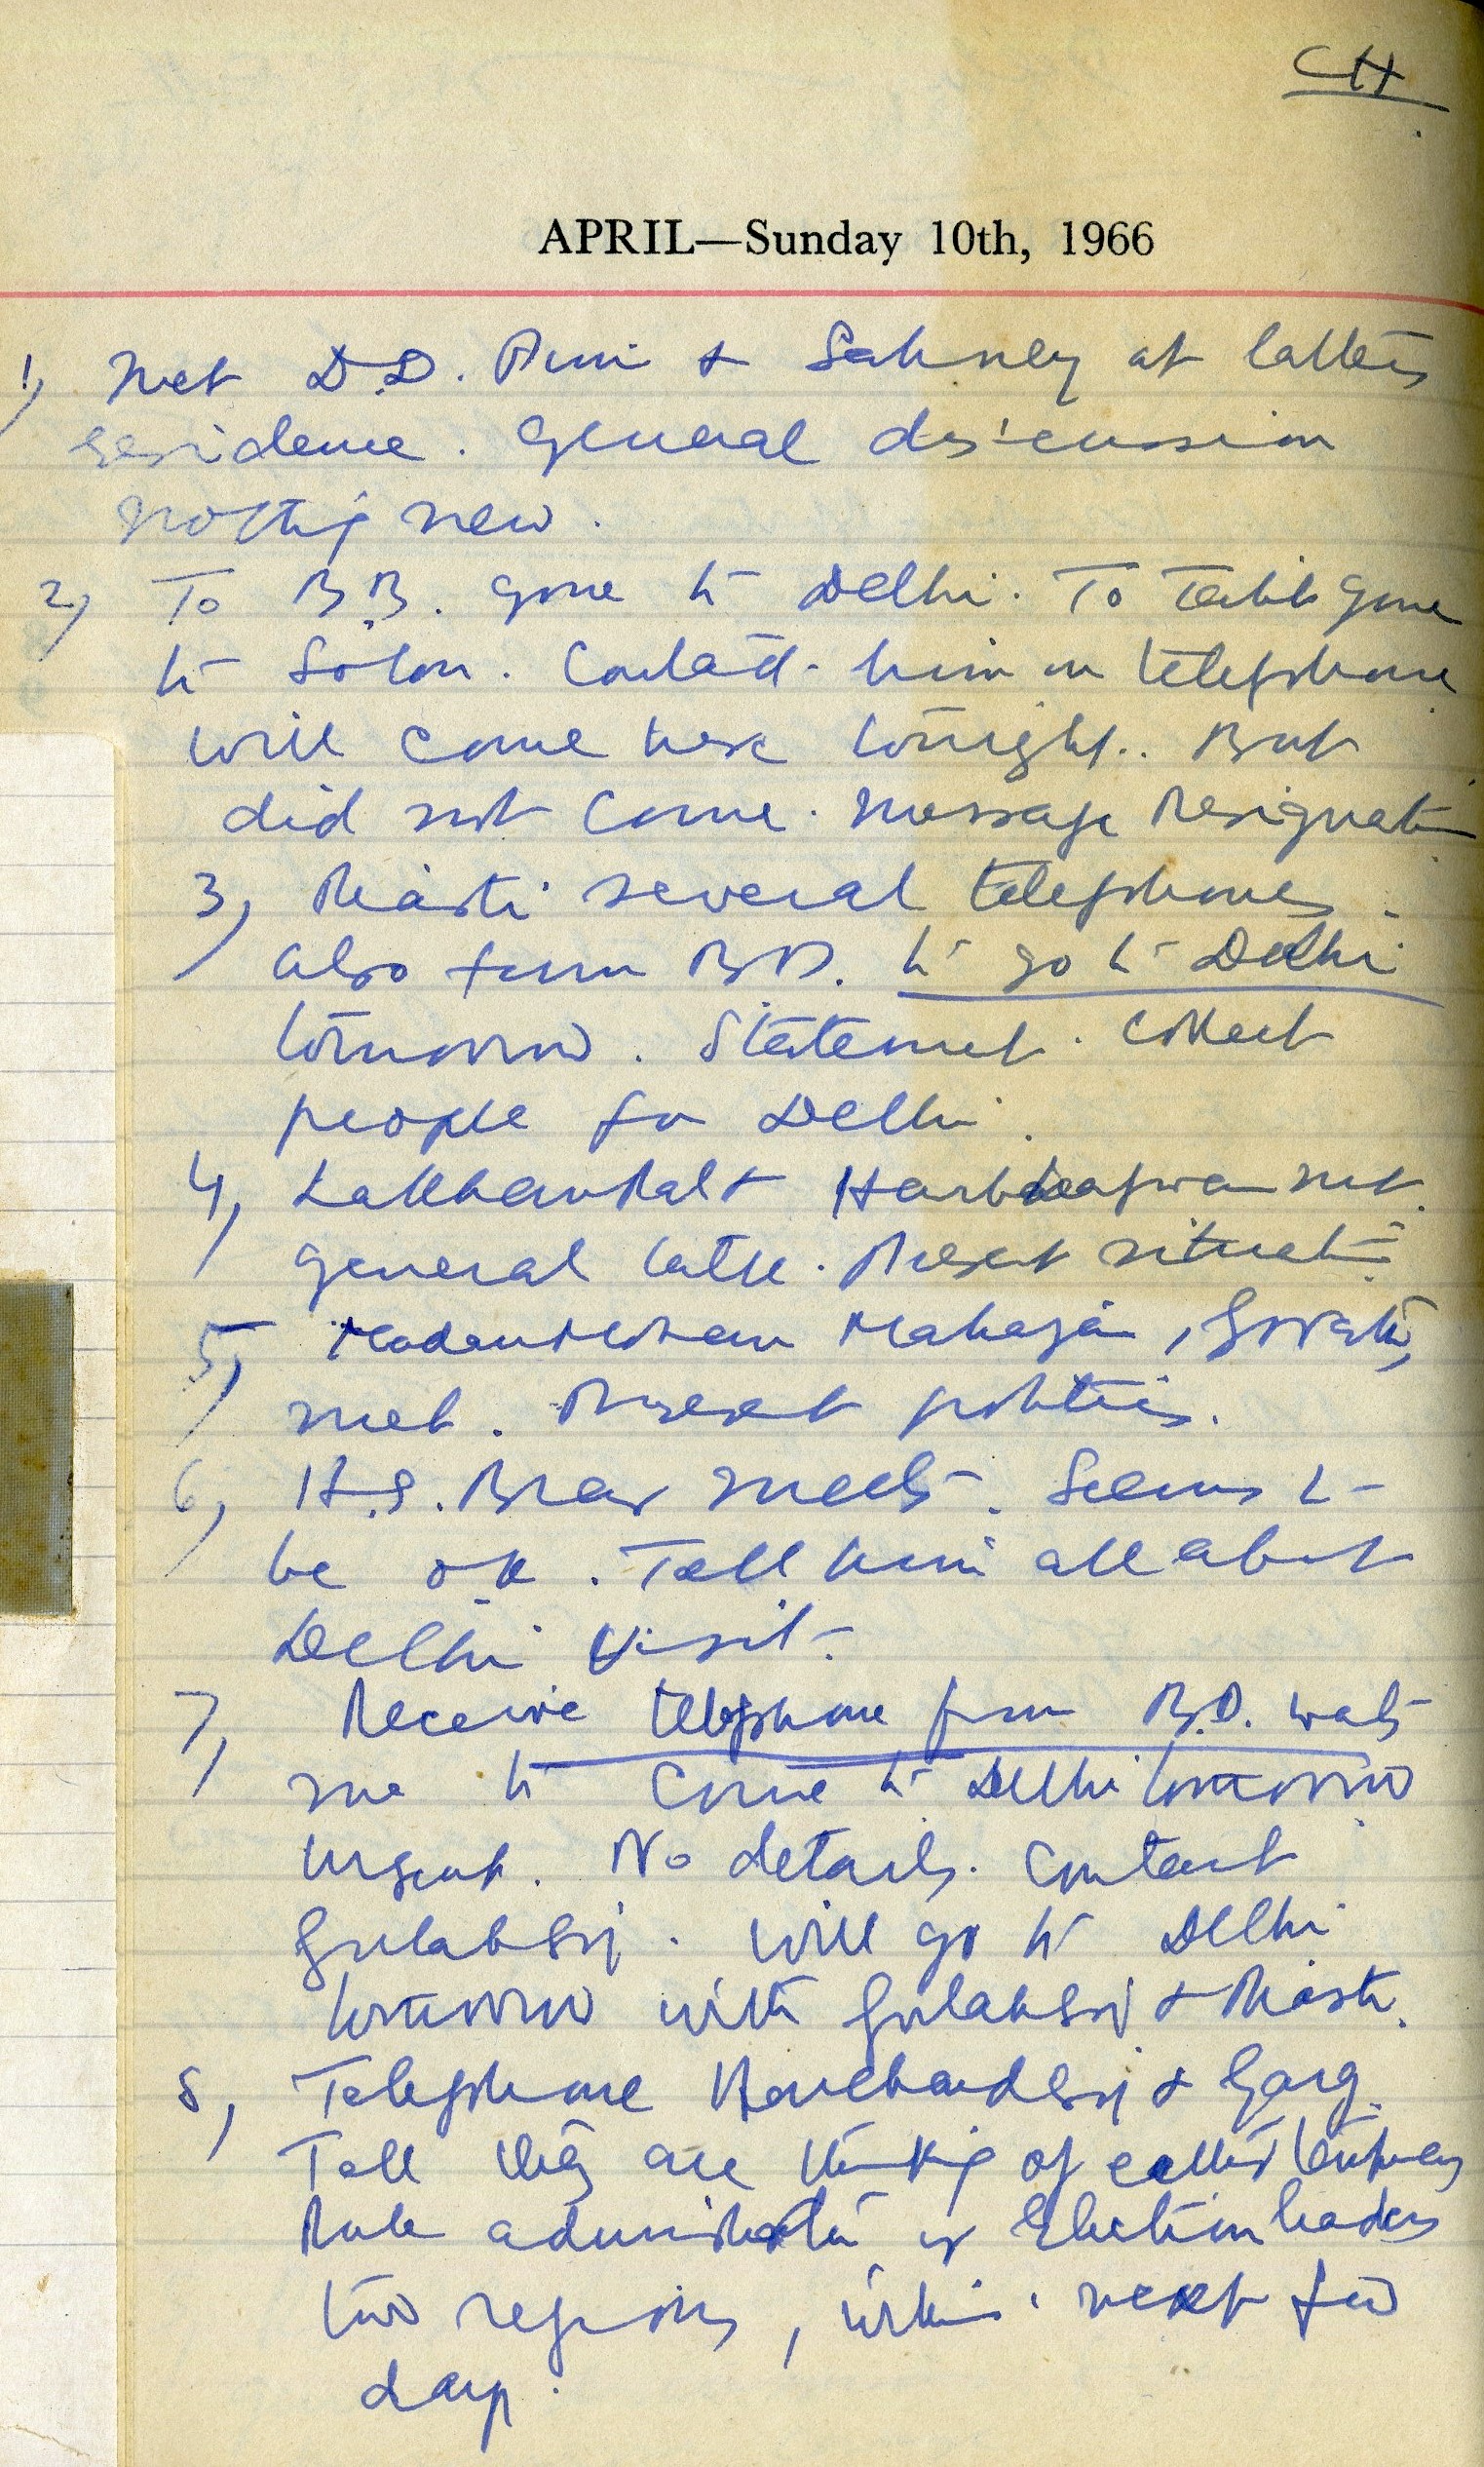 CH
APRIL—Sunday 10th, 1966
1) Met D.D. Puri & Sahney at latter's
residence. General discussion
nothing new.
2) To B.B. gone to Delhi. To gone
to Solon. Contact him on telephone
will come here tonight. But
did not come. Message Resignation
3) several telephones.
also from B.D. to go to Delhi
tomorrow. Statement. Collect
people for Delhi.
4) & met.
general talk. Present situation
5) Madan Mohan Mahajan,
met. Present politics.
6) H.S. Brar meets. Seems to
be ok. Tell him all about
Delhi visit.
7) Receive telephone from B.D. wants
me to come to Delhi tomorrow
urgent. No details. Contact
Gulab Sij. Will go to Delhi
tomorrow with Gulab Sij &
8) Telephone Harchand Sij & Garg.
Tell they are thinking of
Rule or Election leaders
two regions, within next few
days.